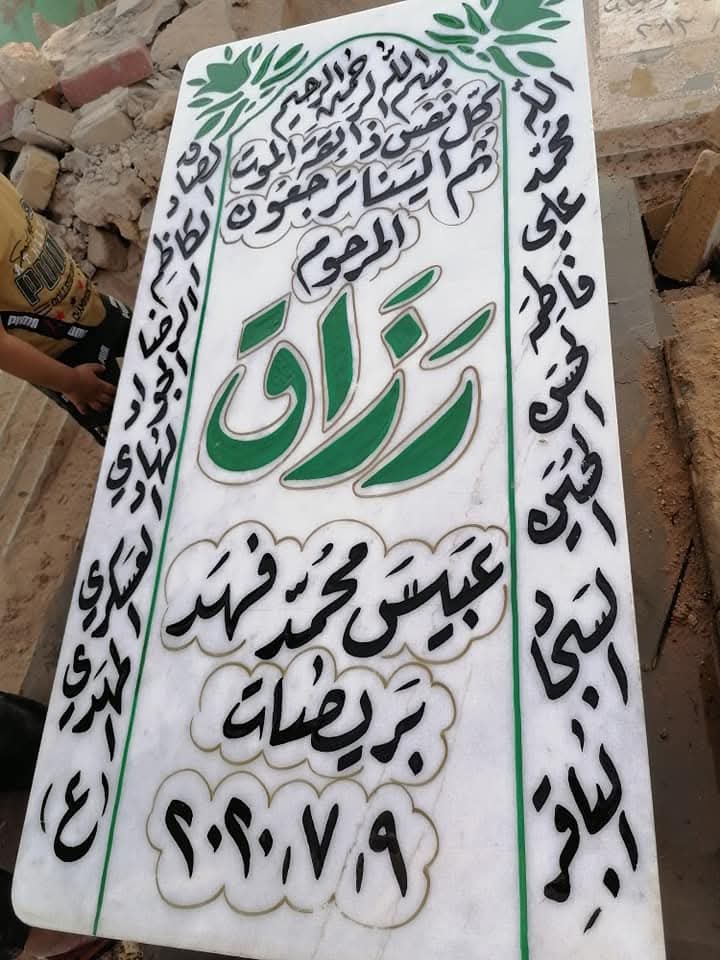 بسم الله الرحمن الرحيم
كل نفس ذائقة الموت
ثم الينا ترجعون
المرحوم
رزاق
عبيس محمد فهد
بريصات
٢٠٢٠،٧،٩
الله محمد علي فاطمه الحسن الحسين السجاد الباقر
الصادق الكاظم الرضا الجواد الهادي العسكري المهدي (ع)
PUMA